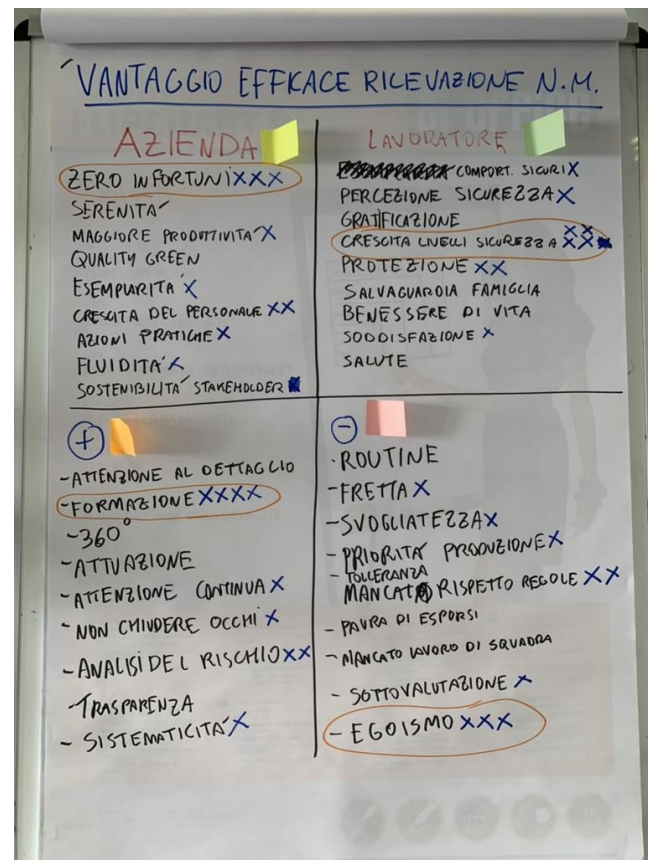 VANTAGGIO EFFICACE RILEVAZIONE N.M.
AZIENDA
ZERO INFORTUNI XXX
SERENITA'
MAGGIORE PRODUTTIVITA' X
QUALITY GREEN
ESEMPLARITA' X
CRESCITA DEL PERSONALE XX
AZIONI PRATICHE X
FLUIDITA' X
SOSTENIBILITA' STAKEHOLDER
LAVORATORE
COMPORT. SICURI X
PERCEZIONE SICUREZZA X
GRATIFICAZIONE
CRESCITA LIVELLI SICUREZZA XXXX
PROTEZIONE XX
SALVAGUARDIA FAMIGLIA
BENESSERE DI VITA
SODDISFAZIONE X
SALUTE
+
-ATTENZIONE AL DETTAGLIO
-FORMAZIONE XXXX
-360°
-ATTUAZIONE
-ATTENZIONE CONTINUA X
-NON CHIUDERE OCCHI X
-ANALISI DEL RISCHIO XX
-TRASPARENZA
- SISTEMATICITA' X
-
-ROUTINE
-FRETTA X
-SVOGLIATEZZA X
-PRIORITA' PRODUZIONE X
-TOLLERANZA
MANCATO RISPETTO REGOLE XX
- PAURA DI ESPORSI
- MANCATO LAVORO DI SQUADRA
- SOTTOVALUTAZIONE X
- EGOISMO XXX